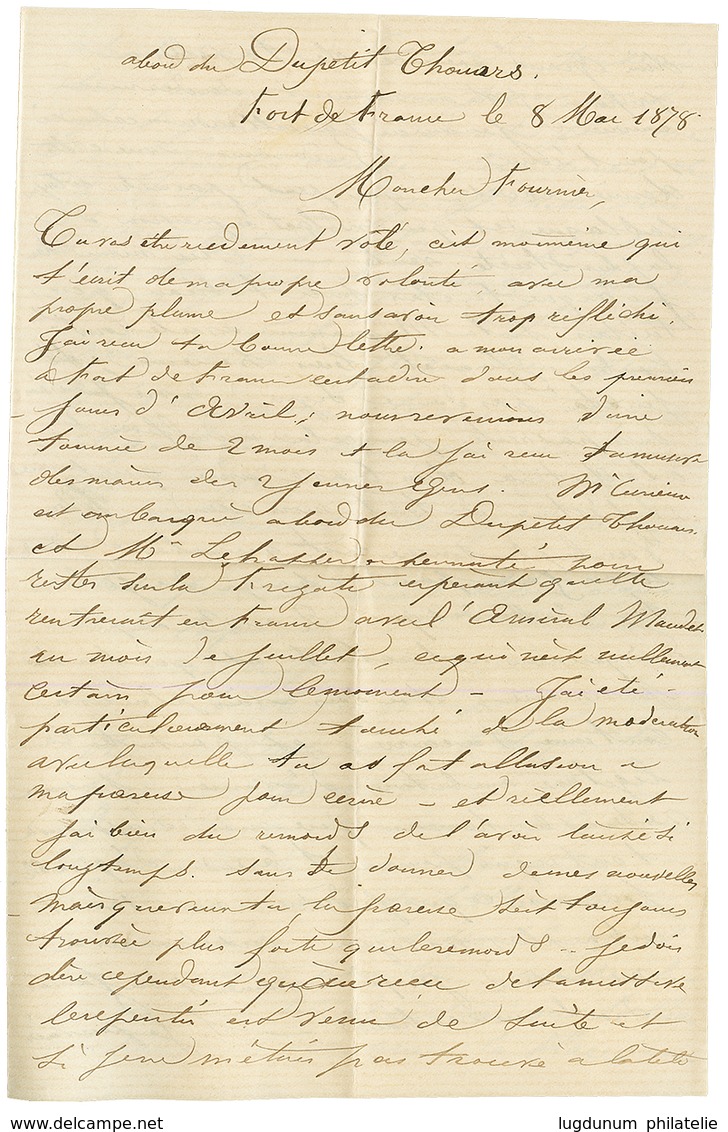 abord du Dupetit Thouars.
Fort de France le 8 Mai 1878
Mon cher Fournier,
Tu vas être rudement volé, c'est moi même qui
t'écrit de ma propre volonté avec ma
propre plume et sans avoir trop réfléchi.
J'ai reçu ta bonne lettre. a mon arrivée
a Fort de France c'est a dire dans les premiers
jours d'Avril; nous revenions d'une
tournée de 2 mois et la j'ai reçu ta missive
des mains des 2 jeunes gens. Mr
est embarqué abord du Dupetit Thouars
et Mr a permuté pour
rester sur la Frégate espérant qu'elle
rentrerait en France avec l'Amiral Maudet
au mois de Juillet, ce qui n'est nullement
certain pour le moment - J'ai été -
particulièrement touché de la modération
avec laquelle tu as fait allusion a
ma paresse pour écrire - et réellement
j'ai bien du remords de t'avoir laissé si
longtemps. sans te donner de mes nouvelles
mais que veux tu, la paresse s'est toujours
trouvée plus forte que le remords - Je dois
dire cependant qu'au reçu de ta missive
le repentir est venu de suite et
si je ne m'étais pas trouvé a la tête
www.delcampe.net
lugdunum philatelie